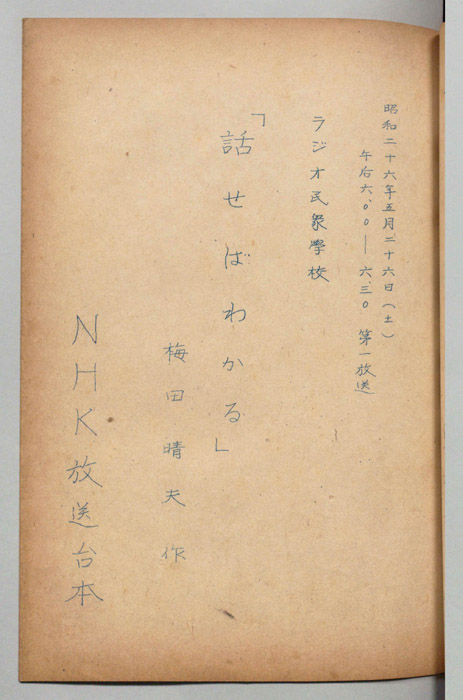 昭和二十六年五月二十六日(土)
午后六.〇〇―六.三〇 第一放送
ラジオ民衆學校
「話せばわかる」
梅田晴夫 作
NHK放送台本